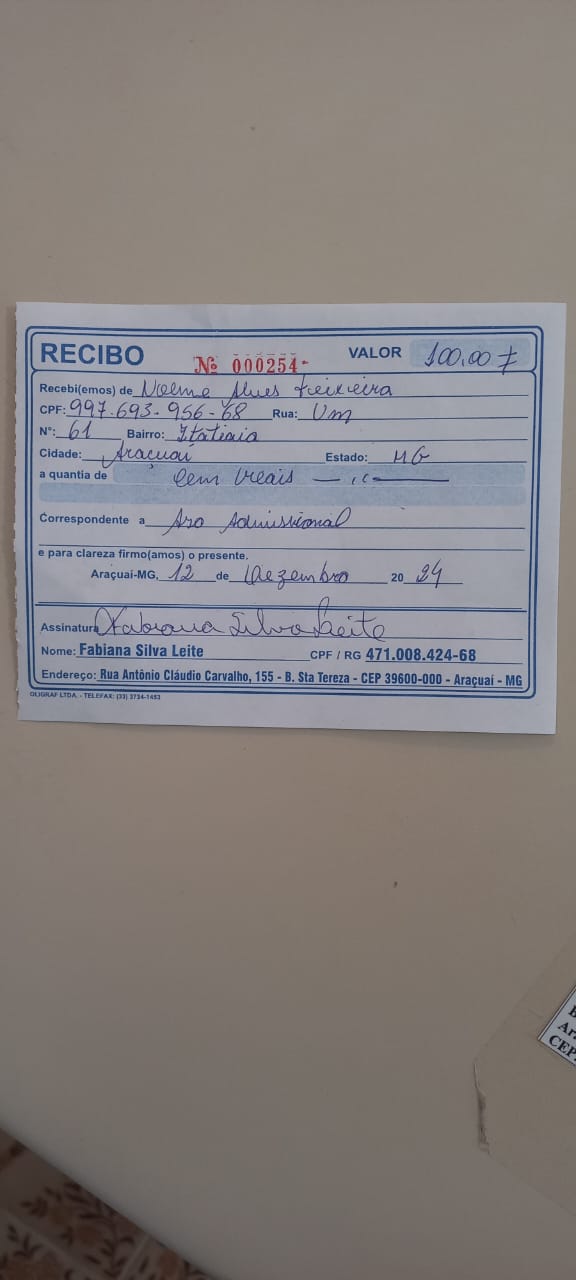 RECIBO Nº 000254 VALOR 100,00
Recebi(emos) de Noeme Alves Teixeira
CPF: 997.693.956-68 Rua: Um
N°: 61 Bairro: Itatiaia
Cidade: Araçuaí Estado: MG
a quantia de Cem reais
Correspondente a Aso Admissional
e para clareza firmo(amos) o presente.
Araçuaí-MG, 12 de Dezembro 20 24
Assinatura Fabiana Silva Leite
Nome: Fabiana Silva Leite CPF / RG 471.008.424-68
Endereço: Rua Antônio Cláudio Carvalho, 155 - B. Sta Tereza - CEP 39600-000 - Araçuaí - MG
OLIGRAF LTDA. - TELEFAX: (33) 3734-1453
CEP